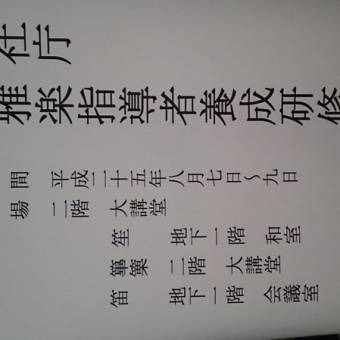 社庁
雅楽指導者養成研修
間 平成二十五年八月七日～九日
場 二階 大講堂
笙 地下一階 和室
篳篥 二階 大講堂
笛 地下一階 会議室